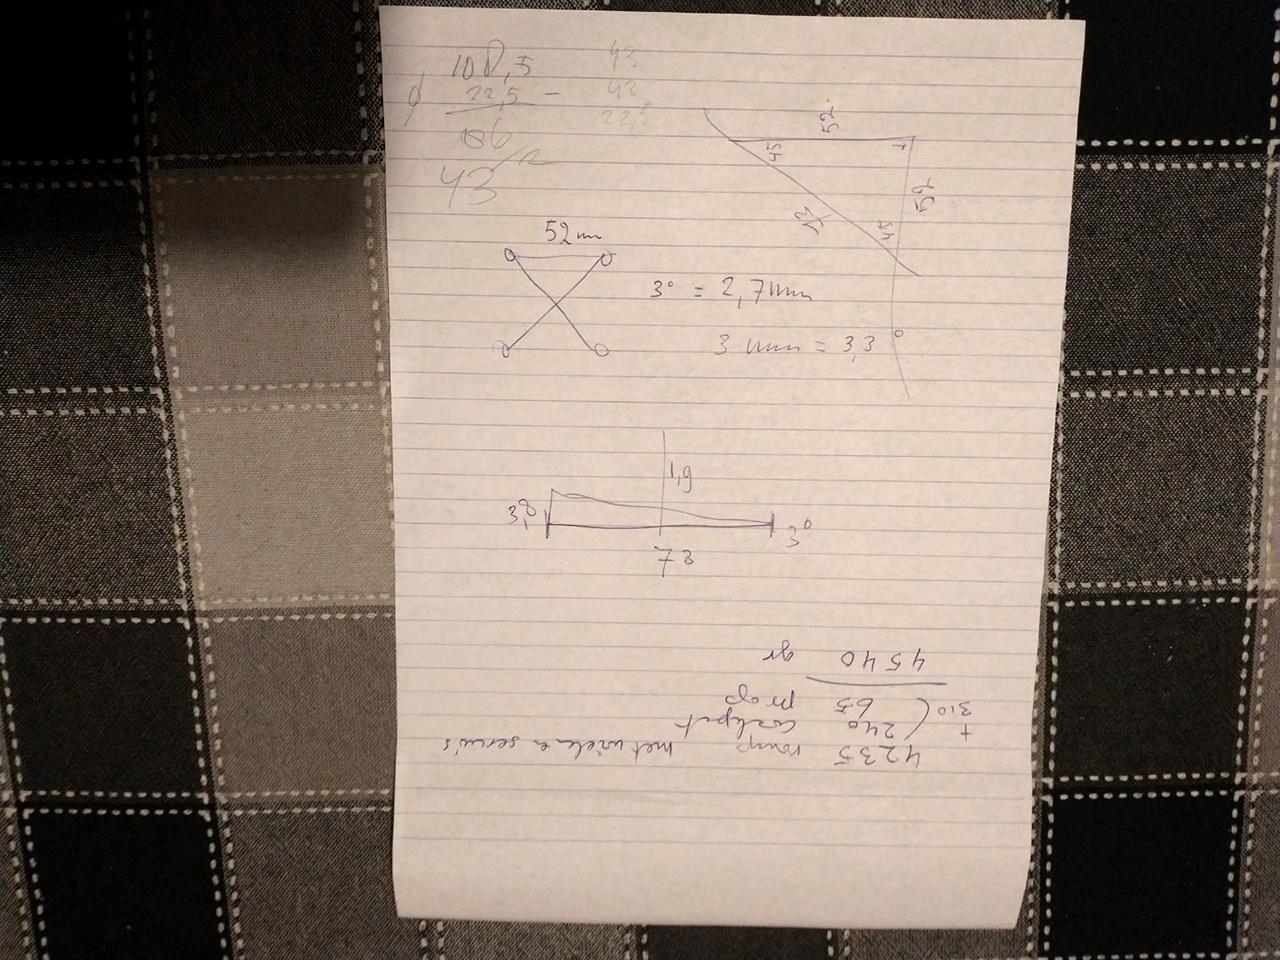 108,5
22,5 -
86
/2
43
43
43
22,5
52
45
52
45
73
52 mm
3° = 2,7 mm
3 mm = 3,3
1,9
3,8
3°
73
4235 romp met wielen servo's
+ 240 cockpit
310 ( 65 prop
4540 gr